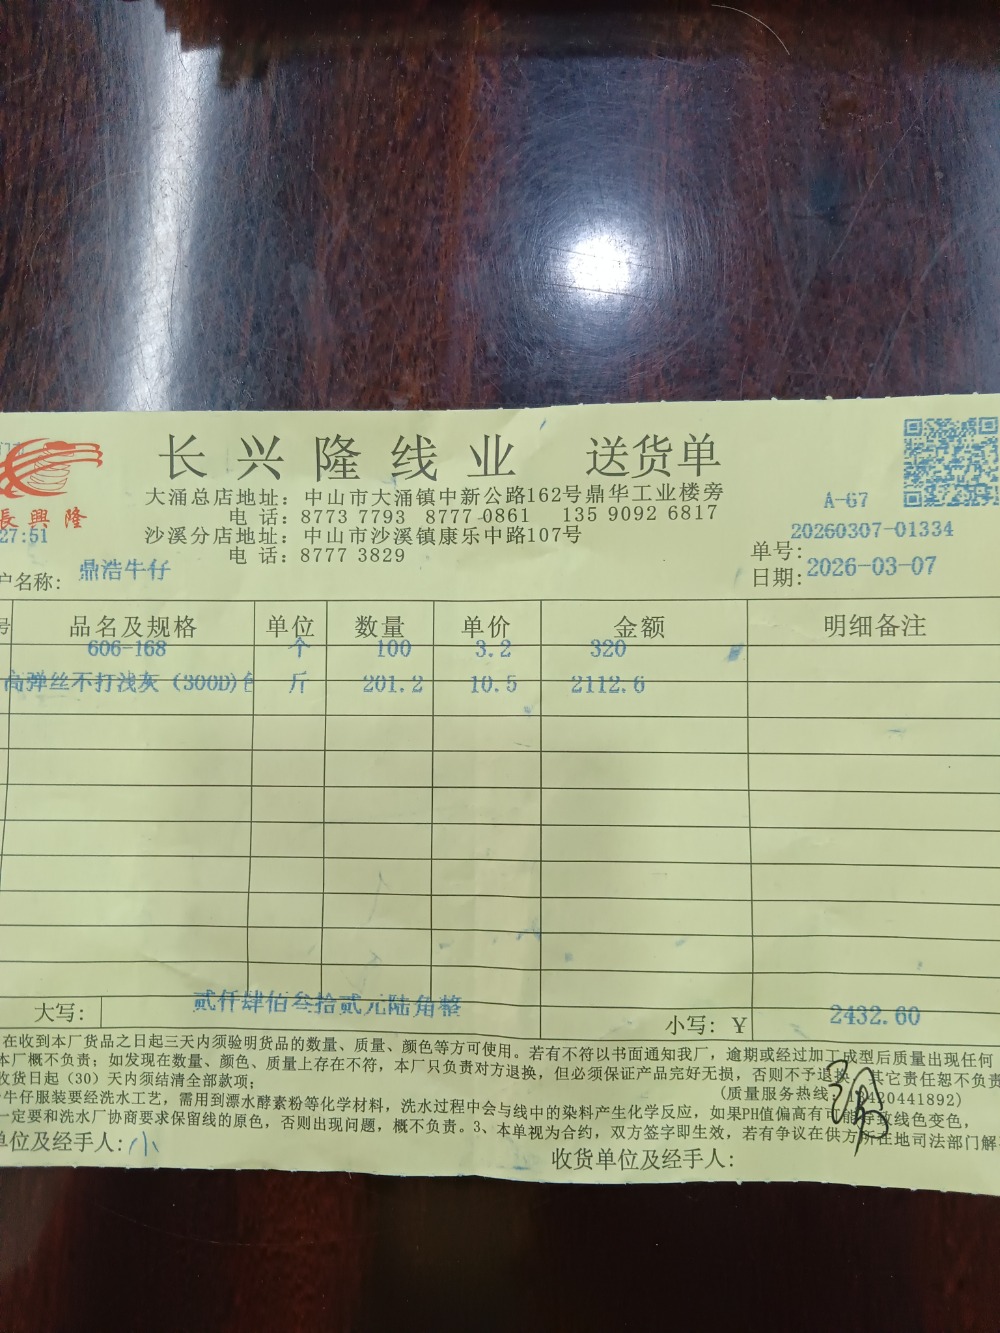 长兴隆线业 送货单
長興隆
大涌总店地址：中山市大涌镇中新公路162号鼎华工业楼旁
电 话：8773 7793 8777-0861 135 9092 6817
沙溪分店地址：中山市沙溪镇康乐中路107号
电 话：8777 3829
A-67
27:51
单号：20260307-01334
日期：2026-03-07
户名称：鼎浩牛仔
号 品名及规格 单位 数量 单价 金额 明细备注
606-168 个 100 3.2 320
高弹丝不打浅灰 (300D) 斤 201.2 10.5 2112.6
大写：贰仟肆佰叁拾贰元陆角整
小写：￥ 2432.60
在收到本厂货品之日起三天内须验明货品的数量、质量、颜色等方可使用。若有不符以书面通知我厂，逾期或经过加工成型后质量出现任何
本厂概不负责；如发现在数量、颜色、质量上存在不符，本厂只负责对方退换，但必须保证产品完好无损，否则不予退换，其它责任恕不负责
收货日起（30）天内须结清全部款项；
(质量服务热线：13420441892)
牛仔服装要经洗水工艺，需用到漂水酵素粉等化学材料，洗水过程中会与线中的染料产生化学反应，如果PH值偏高有可能导致线色变色，
一定要和洗水厂协商要求保留线的原色，否则出现问题，概不负责。3、本单视为合约，双方签字即生效，若有争议在供方所在地司法部门解
单位及经手人：小
收货单位及经手人：